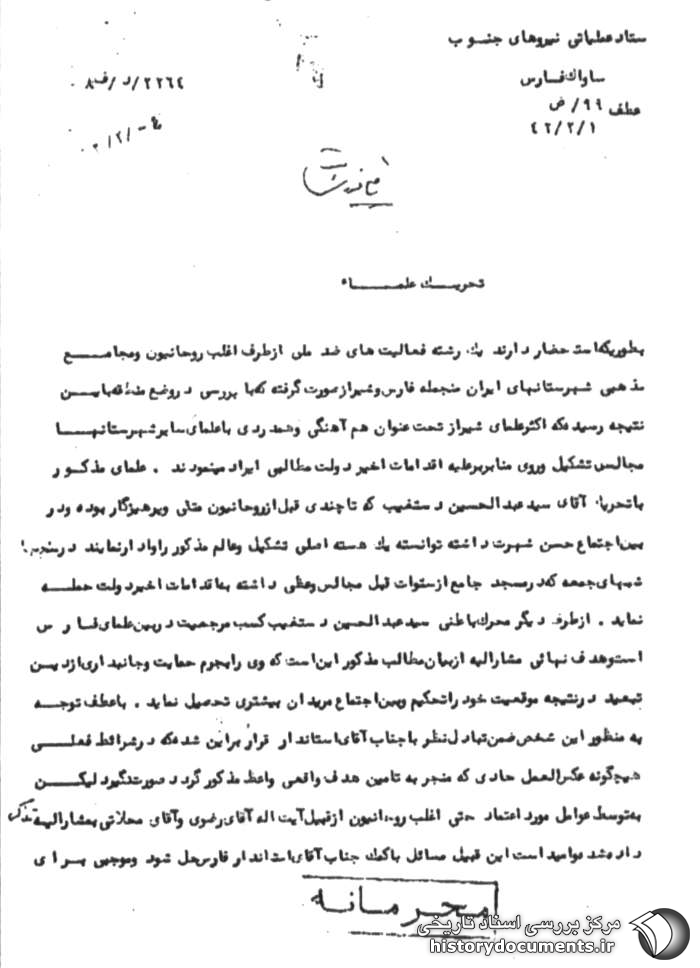 ستاد عملیاتی نیروهای جنوب
ساواك فارس
۲۲۶۴/د/ف۸
عطف ۹۹/ض
۴۲/۲/۱
تحریك علماء
بطوریکه استحضار دارند یك رشته فعالیت های ضد ملی ازطرف اغلب روحانیون ومجامع
مذهبی شهرستانهای ایران منجمله فارس وشیراز صورت گرفته که با بررسی در وضع منطقه باین
نتیجه رسیده که اکثر علمای شیراز تحت عنوان هم آهنگی وهمدردی با علمای سایر شهرستانها
مجالس تشکیل وروی منابر برعلیه اقدامات اخیر دولت مطالبی ایراد مینمودند . علمای مذکور
با تحریك آقای سید عبدالحسین دستغیب که تا چندی قبل از روحانیون متقی وپرهیزگار بوده ودر
بین اجتماع حسن شهرت داشته توانسته یك هسته اصلی تشکیل وعالم مذکور را وادار نمایند در
شبهای جمعه که در مسجد جامع از سنوات قبل مجالس وعظی داشته به اقدامات اخیر دولت حمله
نماید . ازطرف دیگر محرك باطنی سید عبدالحسین دستغیب کسب مرجعیت در بین علمای فارس
است وهدف نهائی مشارالیه از بیان مطالب مذکور این است که وی را بجرم حمایت وجانبداری از دین
تبعید در نتیجه موقعیت خود را تحکیم وبین اجتماع مریدان بیشتری تحصیل نماید . با عطف توجه
به منظور این شخص ضمن تبادل نظر با جناب آقای استاندار قرار براین شده که در شرائط فعلی
هیچگونه عکس العمل حادی که منجر به تامین هدف واقعی واعظ مذکور گردد صورت نگیرد لیکن
به توسط عوامل مورد اعتماد حتی اغلب روحانیون از قبیل آیت اله آقای رضوی وآقای محلاتی بمشارالیه تذکر
داده شد وامید است این قبیل مسائل با کمك جناب آقای استاندار فارس حل شود وموجبی برای
محرمانه
مرکز بررسی اسناد تاریخی
historydocuments.ir